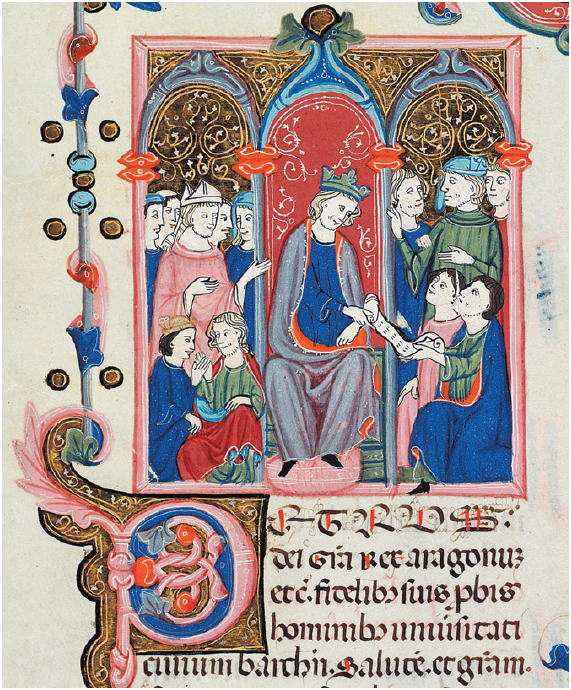 PETRUS:
dei gr̄a Rex aragonuꝫ
etc̄. fidelibꝫ suis ꝓbis
hominibꝫ uniu̾sitati
ciuium barchn̄. Salutē. et gr̄am.